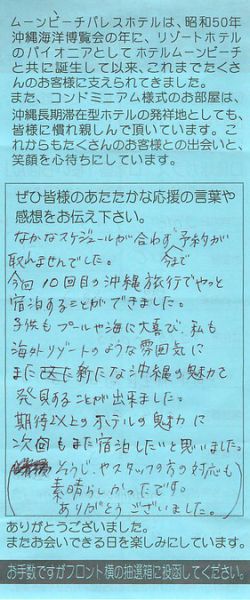 ムーンビーチパレスホテルは、昭和50年
沖縄海洋博覧会の年に、リゾートホテル
のパイオニアとしてホテルムーンビーチ
と共に誕生して以来、これまでたくさ
んのお客様に支えられてきました。
また、コンドミニアム様式のお部屋は、
沖縄長期滞在型ホテルの発祥地としても、
皆様に慣れ親しんで頂いています。こ
れからもたくさんのお客様との出会いと、
笑顔を心待ちにしています。
ぜひ皆様のあたたかな応援の言葉や
感想をお伝え下さい。
なかなスケジュールが合わず予約が
取れませんでした。今まで
今回10回目の沖縄旅行でやっと
宿泊することができました。
子供もプールや海に大喜び、私も
海外リゾートのような雰囲気に
また新たな沖縄の魅力を
発見することが出来ました。
期待以上のホテルの魅力に
次回もまた宿泊したいと思いました。
(そうじやスタッフの方の対応も
素晴らしかったです。
ありがとうございました。)
ありがとうございました。
またお会いできる日を楽しみにしています。
お手数ですがフロント横の抽選箱に投函してください。